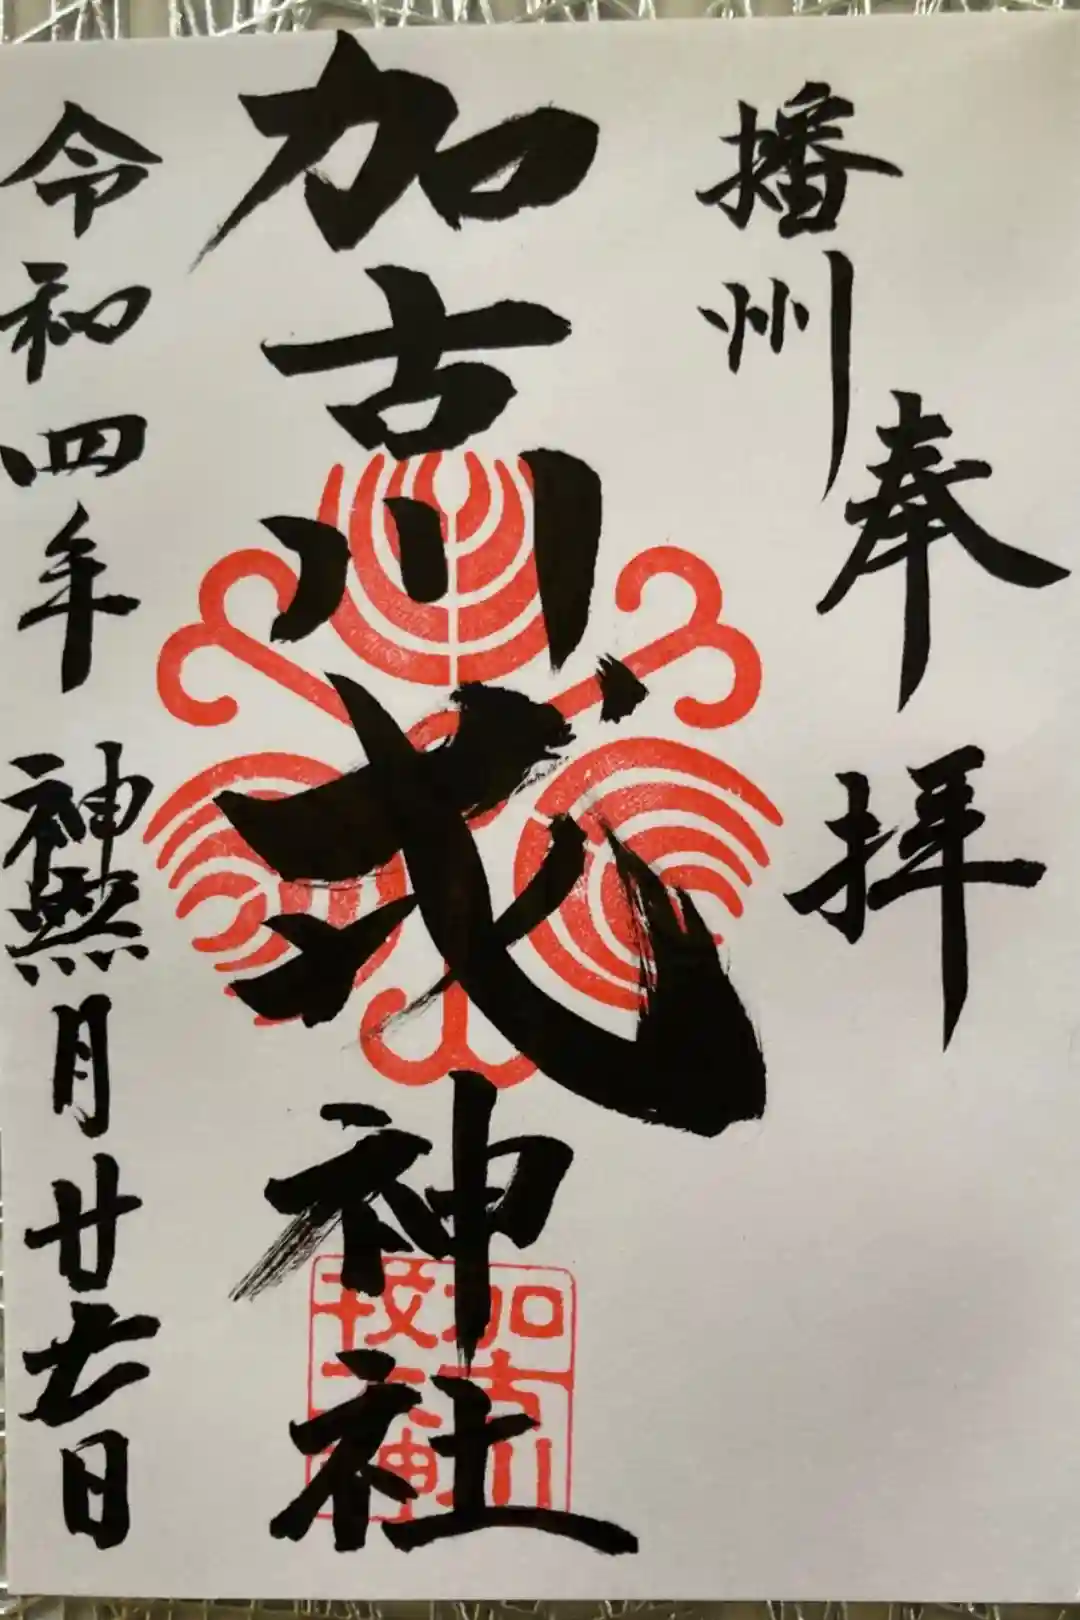 播州
奉拝
加古川戎神社
加古川
令和四年神無月廿七日